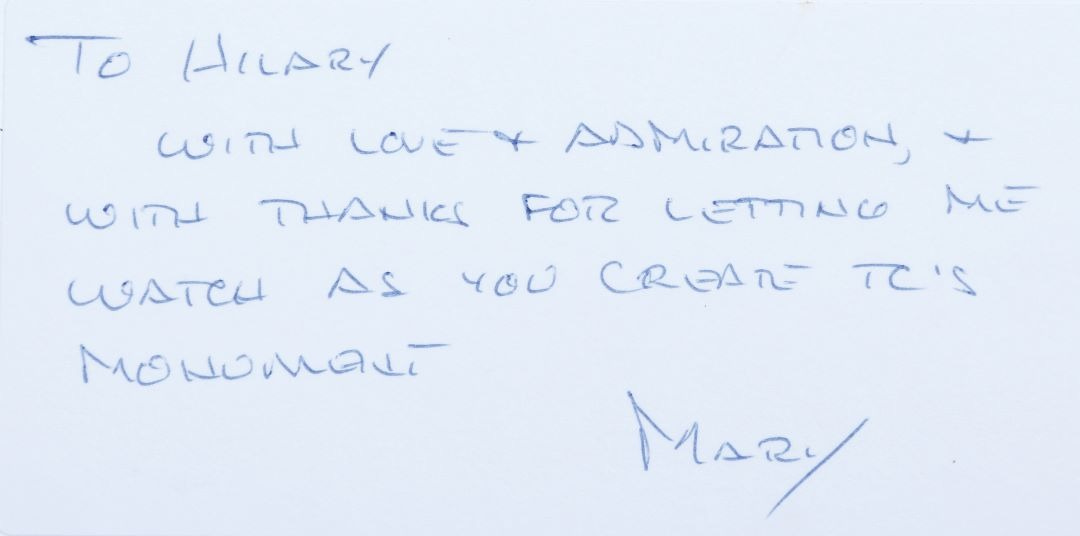 TO HILARY
WITH LOVE + ADMIRATION, +
WITH THANKS FOR LETTING ME
WATCH AS YOU CREATE TC'S
MONUMENT
MARY